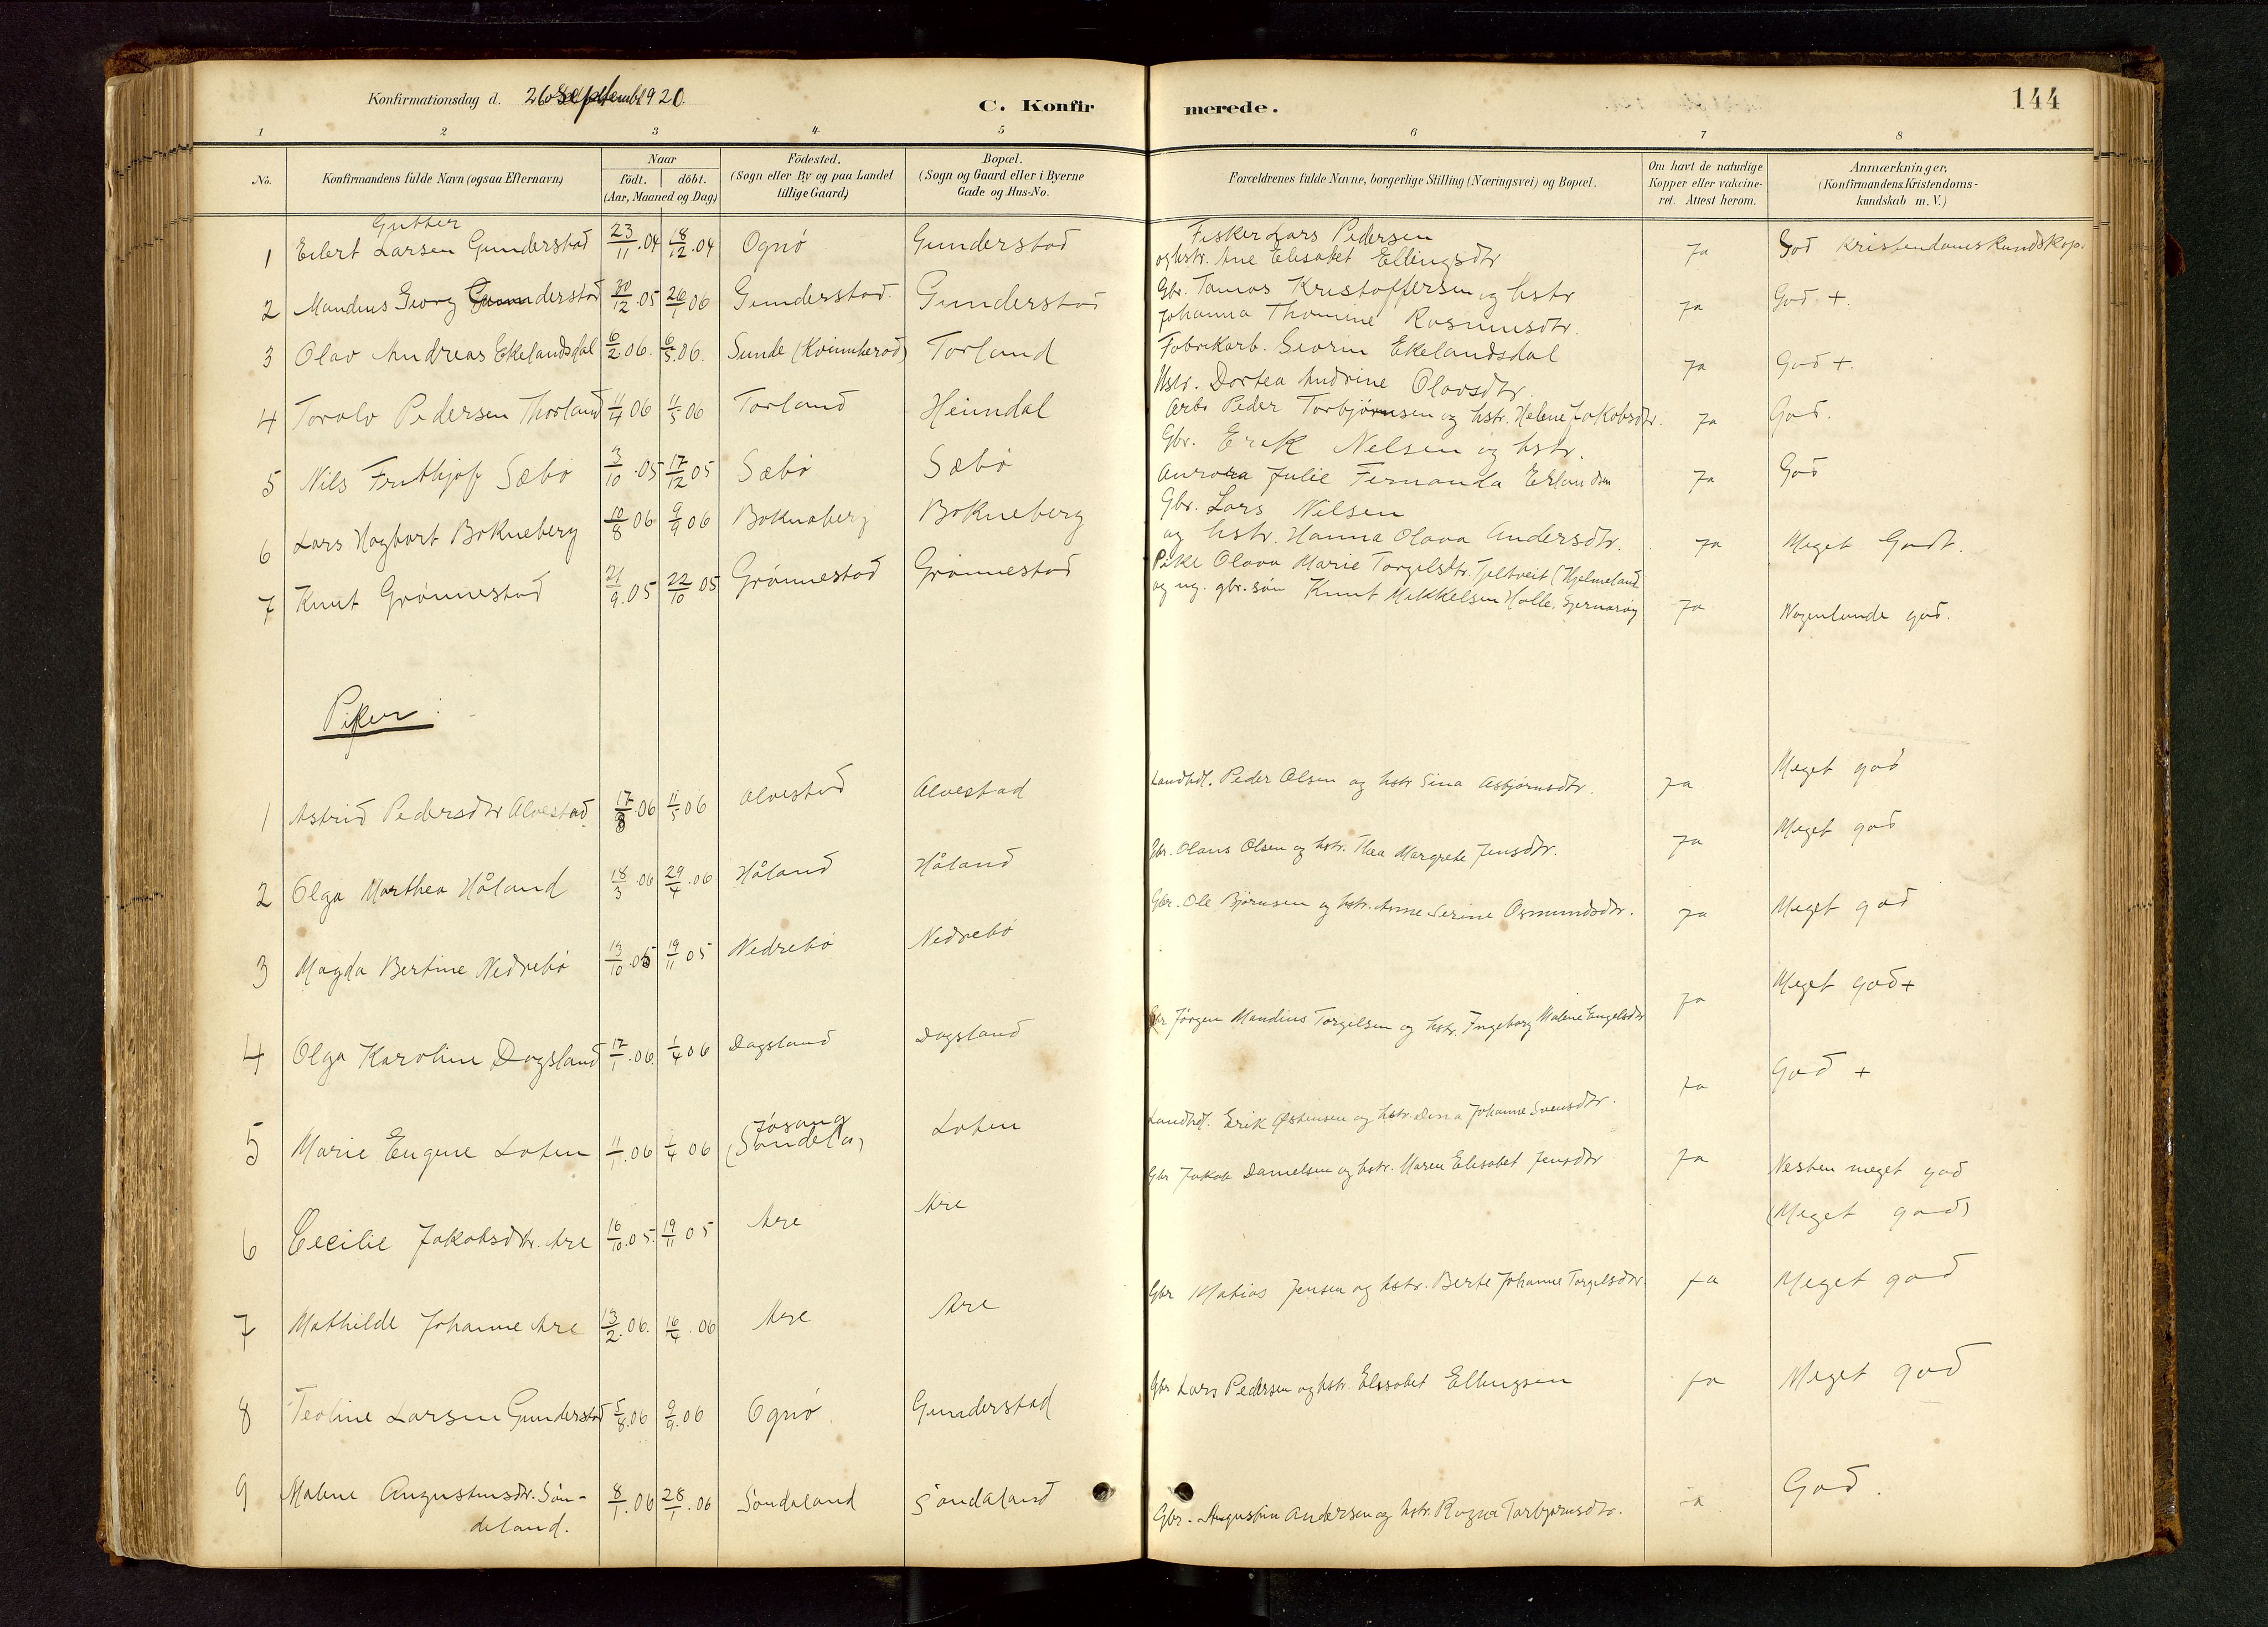 Konfirmationsdag d. 26 September 1920.
C. Konfirmerede.
144
1 2 3 4 5 6 7 8
No. Konfirmandens fulde Navn (ogsaa Efternavn)
Naar
födt. döbt.
(Aar, Maaned og Dag.)
Födested.
(Sogn eller By og paa Landet
tillige Gaard.)
Bopæl.
(Sogn og Gaard eller i Byerne
Gade og Hus-No.
Forældrenes fulde Navne, borgerlige Stilling (Næringsvei) og Bopæl.
Om havt de naturlige
Kopper eller vakcine-
ret. Attest herom.
Anmærkninger.
(Konfirmandens Kristendoms-
kundskab m. V.)
Gutter
1 Eilert Larsen Gunderstad 23/11.04 18/12.04 Ognø Gunderstad Fisker Lars Pedersen
og hstr. Ane Elisabet Ellingsdtr ja God Kristendomskundskap.
2 Mandius Georg Gunderstad 30/12.05 26/1 06 Gunderstad. Gunderstad Gbr. Tomas Kristoffersen og hstr
Johanna Thomine Rasmusdtr. ja God +.
3 Olav Andreas Ekelandsdal 6/2.06. 6/5.06. Sunde (Kvinnherad) Torland Fabrikarb. Georin Ekelandsdal
Hstr. Dortea Andrine Olavsdtr. ja God +.
4 Toralv Pedersen Thorland 11/4 06 11/5 06 Torland Heimdal Arb. Peder Torbjørnsen og hstr. Helene Jakobsdtr. ja God.
5 Nils Fruthjof Sæbø 3/10.05 17/12 05 Sæbø Sæbø Gbr. Erik Nelsen og hstr.
Aurora Julie Fernanda Erlandsen ja God
6 Lars Hagbart Bokneberg 10/8 06 9/9 06 Boknaberg Bokneberg Gbr. Lars Nilsen
og hstr. Hanna Olava Andersdtr. ja Meget Godt.
7 Knut Grønnestad 21/9.05 22/10 05 Grønnestad Grønnestad Pike Olava Marie Torgelsdtr. Tjeltveit (Hjelmeland
og ug. gbr. søn Knut Mikkelsen Halle, Sjernarøy ja Nogenlunde god.
Piker:
1 Astrid Pedersdtr Alvestad 17/3.06 11/5 06 Alvestad Alvestad Landhdl. Peder Olsen og hstr Sina Asbjørnsdtr. ja Meget god
2 Olga Marthea Håland 18/3.06 29/4.06 Håland Håland Gbr. Olaus Olsen og hstr. Thea Margrete Jensdtr. ja Meget god
3 Magda Bertine Nedrebø 13/10.05 19/11 05 Nedrebø Nedrebø Gbr. Ole Bjørnsen og hstr. Anne Serine Osmundsdtr. ja Meget god
4 Olga Karoline Dagsland 17/1.06. 1/4 06 Dagsland Dagsland Gbr Jørgen Mandius Torgilsen og hstr. Ingeborg Malene Engelsdtr ja Meget god+
5 Marie Eugene Loten 11/1.06 1/4 06 Jøsang
(Søndela) Loten Landhdl. Erik Østensen og hstr. Dina Johanne Svensdtr. ja God +
6 Cecilie Jakobsdtr. Are 16/10.05. 19/11 05 Are Are Gbr Jakob Danielsen og hstr. Maren Elisabet Jensdtr ja Nesten meget god
(Meget god)
7 Mathilde Johanne Are 13/2.06. 16/4.06 Are Are Gbr Matias Jensen og hstr. Berte Johanne Torgelsdtr. ja Meget god
8 Teoline Larsen Gunderstad 5/8.06 9/9.06 Ognø Gunderstad Gbr Lars Pedersen og hstr. Elisabet Ellingsen ja Meget god
9 Malene Augustinusdtr. Søn-
deland. 8/1.06 28/1.06 Søndaland Søndaland Gbr. Augustin Andersen og hstr. Ragna Torbjørnsdtr. ja God.